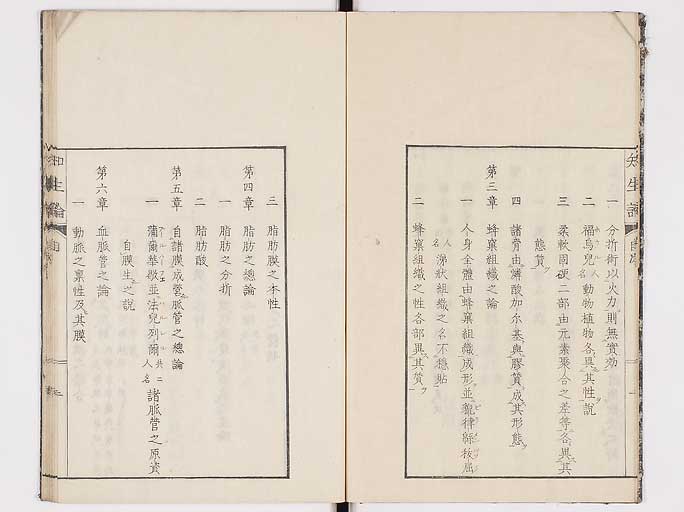 一 分折術以火力則無實効
二 福烏兒人名動物植物各異其性説
三 柔軟固硬二部由元素聚合之差等各異其
態質
四 諸骨由燐酸加尓基與膠質成其形態
第三章 蜂窠組織之論
一 人身全體由蜂窠組織成形並
人名湧狀組織之名不穩貼
二 蜂窠組織之性各部異其質
三 脂肪膜之本性
第四章 脂肪之總論
一 脂肪之分折
二 脂肪酸
第五章 自諸膜成營脈管之總論
一 蒲爾華歇並法兒列爾共二人名諸脈管之原資
自膜生之説
第六章 血脈管之論
一 動脈之稟性及其膜
知生論